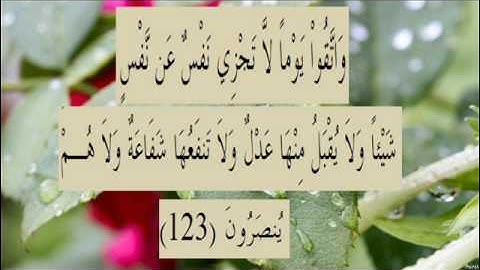 وَاتَّقُوْا يَوْماً لاَّ تَجْزِي نَفْسٌ عَن نَّفْسٍ
شَيْئاً وَلاَ يُقْبَلُ مِنْهَا عَدْلٌ وَلاَ تَنفَعُهَا شَفَاعَةٌ وَلاَ هُــمْ
يُنصَرُونَ (123)